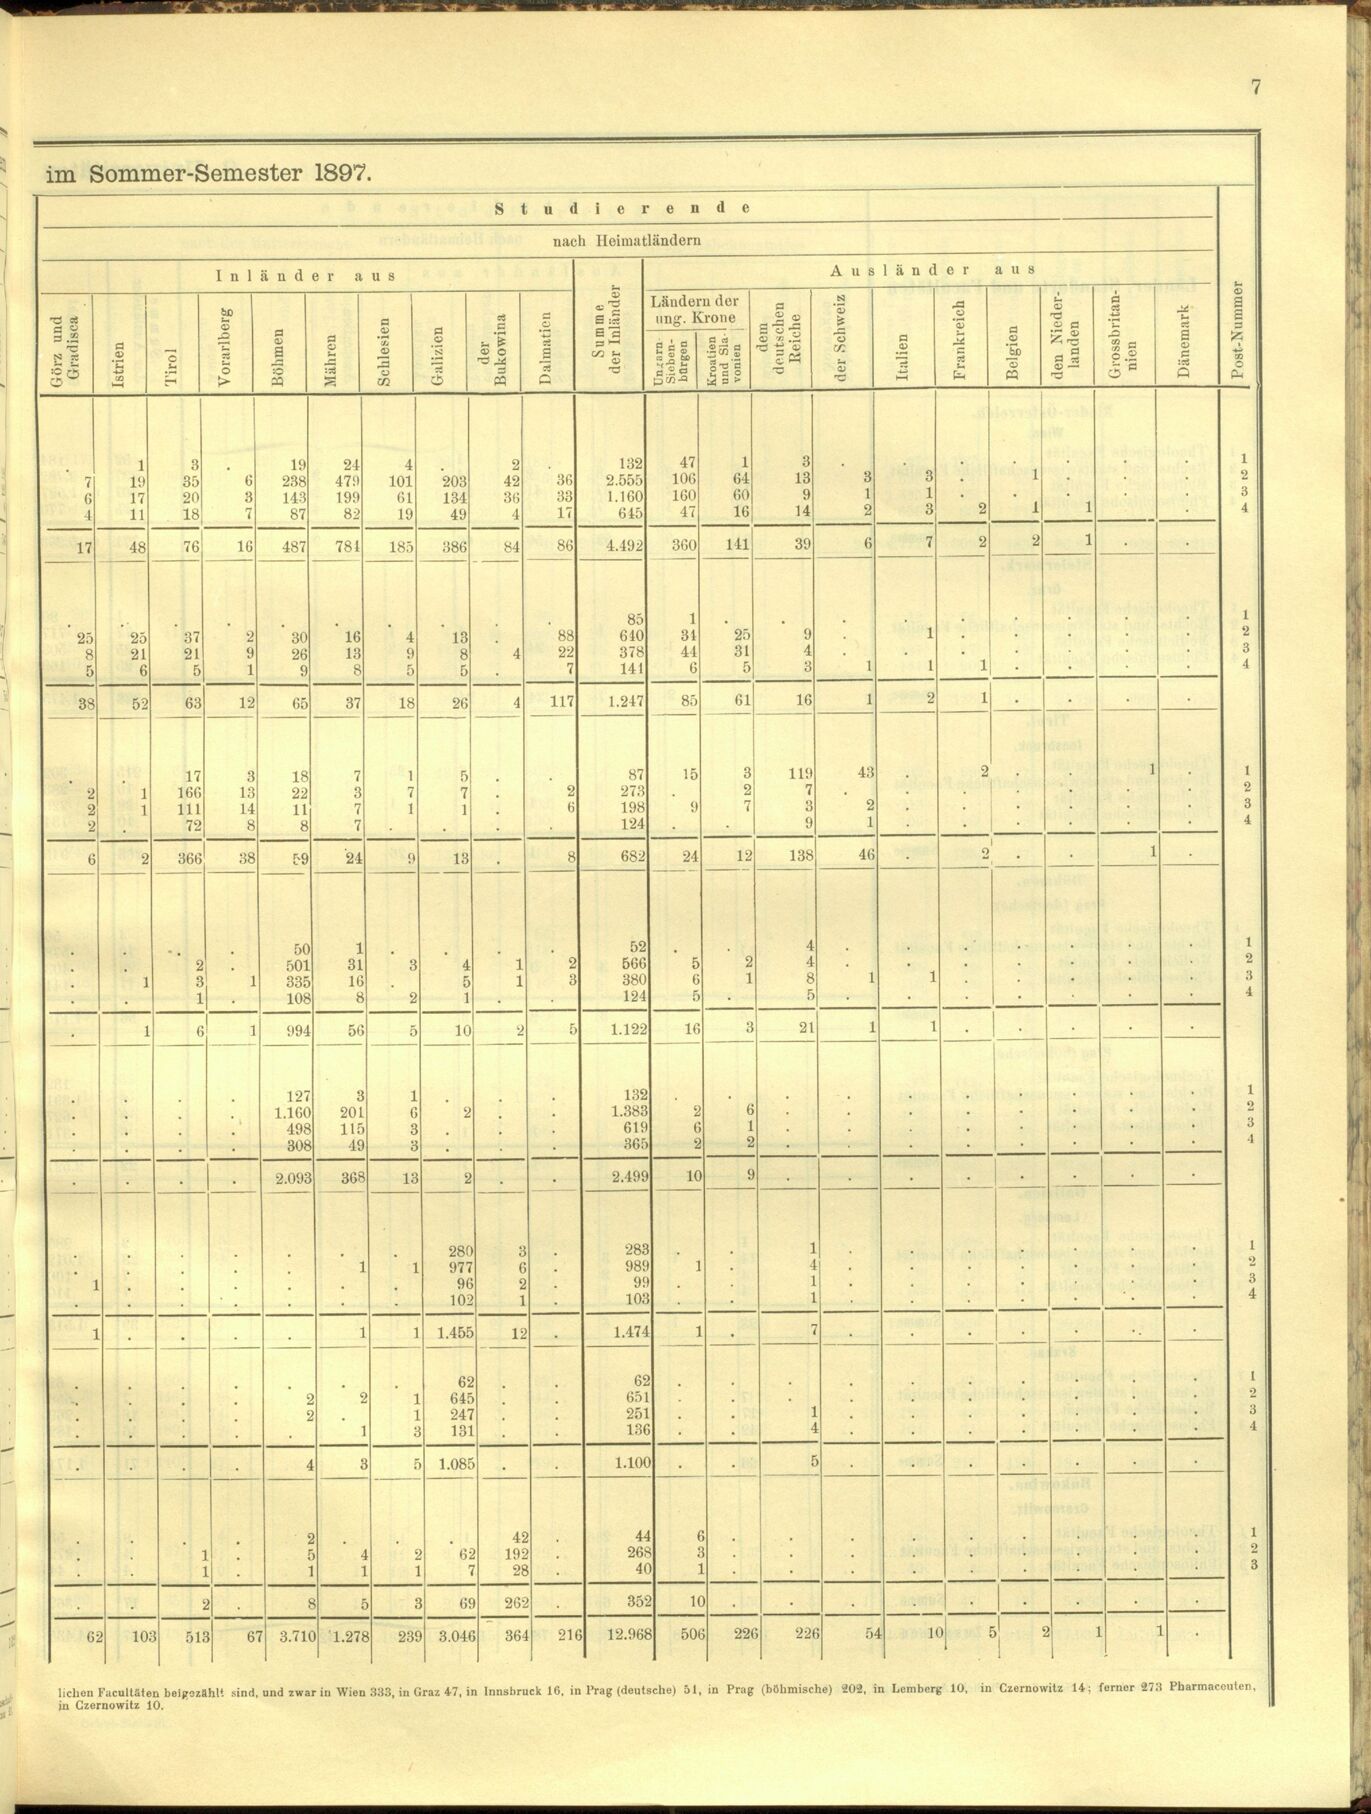 7
im Sommer-Semester 1897.
Studierende
nach Heimatländern
Inländer aus
Summe der Inländer
Ausländer aus
Post-Nummer
Ländern der ung. Krone
Görz und Gradisca
Istrien
Tirol
Vorarlberg
Böhmen
Mähren
Schlesien
Galizien
der Bukowina
Dalmatien
Ungarn-Sieben-bürgen
Kroatien und Sla-vonien
dem deutschen Reiche
der Schweiz
Italien
Frankreich
Belgien
den Nieder-landen
Grossbritan-nien
Dänemark
. 1 3 . 19 24 4 . 2 . 132 47 1 3 . . . . . . . 1
7 19 35 6 238 479 101 203 42 36 2.555 106 64 13 3 3 . 1 . . . 2
6 17 20 3 143 199 61 134 36 33 1.160 160 60 9 1 1 . . . . . 3
4 11 18 7 87 82 19 49 4 17 645 47 16 14 2 3 2 1 1 . 4
17 48 76 16 487 784 185 386 84 86 4.492 360 141 39 6 7 2 2 1 . .
. . . . . . . . . . 85 1 . . . . . . . . . 1
25 25 37 2 30 16 4 13 . 88 640 34 25 9 . 1 . . . . . 2
8 21 21 9 26 13 9 8 4 22 378 44 31 4 . . . . . . . 3
5 6 5 1 9 8 5 5 . 7 141 6 5 3 1 1 1 . . . . 4
38 52 63 12 65 37 18 26 4 117 1.247 85 61 16 1 2 1 . . . .
. . 17 3 18 7 1 5 . . 87 15 3 119 43 . 2 . . 1 . 1
2 1 166 13 22 3 7 7 . 2 273 . 2 7 . . . . . . . 2
2 1 111 14 11 7 1 1 . 6 198 9 7 3 2 . . . . . . 3
2 . 72 8 8 7 . . . . 124 . . 9 1 . . . . . . 4
6 2 366 38 59 24 9 13 . 8 682 24 12 138 46 . 2 . . 1 .
. . . . 50 1 . . . . 52 . . 4 . . . . . . . 1
. . 2 . 501 31 3 4 1 2 566 5 2 4 . . . . . . . 2
. 1 3 1 335 16 . 5 1 3 380 6 1 8 1 1 . . . . . 3
. . 1 . 108 8 2 1 . . 124 5 . 5 . . . . . . . 4
. 1 6 1 994 56 5 10 2 5 1.122 16 3 21 1 1 . . . . .
. . . . 127 3 1 . . . 132 . . . . . . . . . . 1
. . . . 1.160 201 6 2 . . 1.383 2 6 . . . . . . . . 2
. . . . 498 115 3 . . . 619 6 1 . . . . . . . . 3
. . . . 308 49 3 . . . 365 2 2 . . . . . . . . 4
. . . . 2.093 368 13 2 . . 2.499 10 9 . . . . . . . .
. . . . . . . 280 3 . 283 . . 1 . . . . . . . 1
. . . . . 1 1 977 6 . 989 1 . 4 . . . . . . . 2
1 . . . . . . 96 2 . 99 . . 1 . . . . . . . 3
. . . . . . . 102 1 . 103 . . 1 . . . . . . . 4
1 . . . . 1 1 1.455 12 . 1.474 1 . 7 . . . . . . .
. . . . . . . 62 . . 62 . . . . . . . . . . 1
. . . . 2 2 1 645 . . 651 . . . . . . . . . . 2
. . . . 2 . 1 247 . . 251 . . 1 . . . . . . . 3
. . . . . 1 3 131 . . 136 . . 4 . . . . . . . 4
. . . . 4 3 5 1.085 . . 1.100 . . 5 . . . . . . .
. . . . 2 . . . 42 . 44 6 . . . . . . . . . 1
. . 1 . 5 4 2 62 192 . 268 3 . . . . . . . . . 2
. . 1 . 1 1 1 7 28 . 40 1 . . . . . . . . . 3
. . 2 . 8 5 3 69 262 . 352 10 . . . . . . . . .
62 103 513 67 3.710 1.278 239 3.046 364 216 12.968 506 226 226 54 10 5 2 1 1 .
lichen Facultäten beigezählt sind, und zwar in Wien 333, in Graz 47, in Innsbruck 16, in Prag (deutsche) 51, in Prag (böhmische) 202, in Lemberg 10, in Czernowitz 14; ferner 273 Pharmaceuten,
in Czernowitz 10.